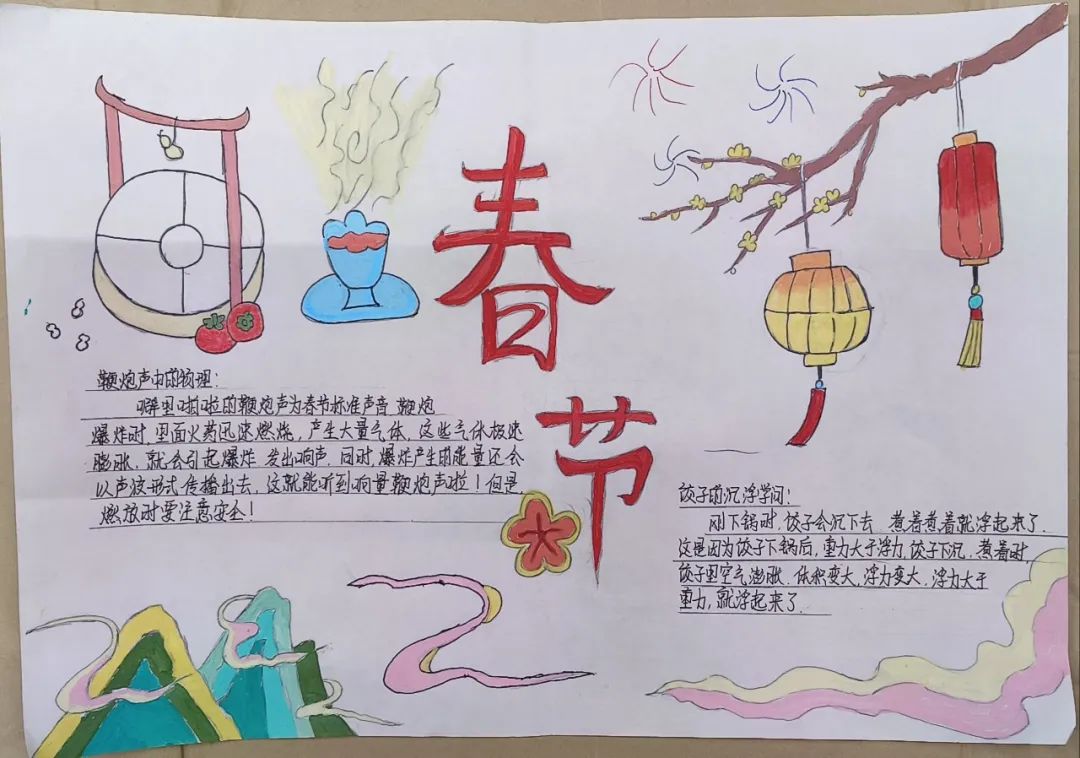 春
节
鞭炮声中的物理：
噼里啪啦的鞭炮声为春节标准声音 鞭炮
爆炸时，里面火药迅速燃烧，产生大量气体，这些气体极速
膨胀，就会引起爆炸 发出响声，同时，爆炸产生的能量还会
以声波形式传播出去，这就能听到响量鞭炮声啦！但是，
燃放时要注意安全！
饺子的沉浮学问：
刚下锅时，饺子会沉下去 煮着煮着就浮起来了．
这是因为饺子下锅后，重力大于浮力，饺子下沉．煮着时，
饺子里空气澎胀．体积变大，浮力变大，浮力大于
重力，就浮起来了．